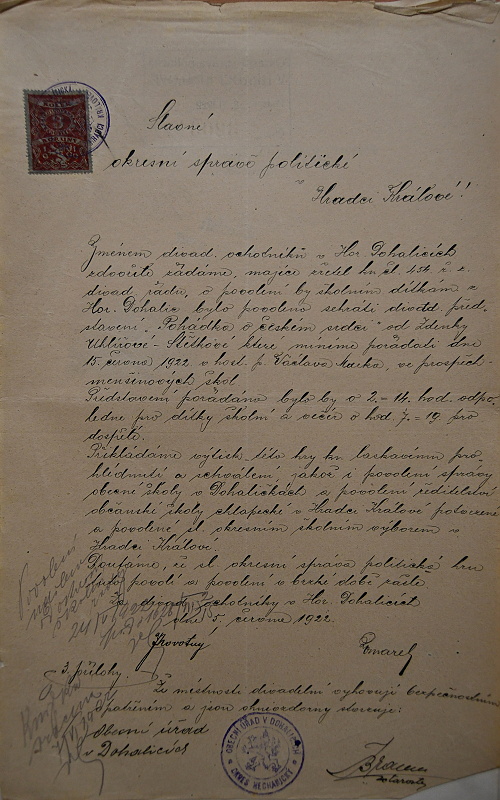 Slavné
okresní správě politické
v Hradci Králové!
Jménem divad. ochotníků v Hor. Dohalicích
zdvořile žádáme, majíce zřetel ku čl. 454. ř. z.
divad. řádu, o povolení by školním dítkám z
Hor. Dohalic bylo povoleno sehráti divad. před-
stavení „Pohádka o českém srdci" od Zdenky
které míníme pořádati dne
15. června 1922 v host. p. Václava Macka, ve prospěch
menšinových škol.
Představení pořádáno bylo by o 2. = 14. hod. odpo-
ledne pro dítky školní a večer o hod. 7. = 19. pro
dospělé.
Přikládáme výtisk této hry ku laskavému pro-
hlédnutí a schválení, jakož i povolení správy
obecné školy v Dohaličkách a povolení ředitelství
občanské školy chlapecké v Hradci Králové potvrzené
a povolené sl. okresním školním výborem v
Hradci Králové.
Doufáme, že sl. okresní správa politická hru
tuto povolí a povolení v brzké době zašle
Za divad. ochotníky v Hor. Dohalicích
dne 5. června 1922.
Novotný
3 přílohy.
Že místnosti divadelní vyhovují bezpečnostním
opatřením a jsou ohnivzdorny stvrzuje:
Obecní úřad
v Dohalicích
OBECNÍ ÚŘAD V DOHALICÍCH
OKRES NECHANICKÝ
starosta